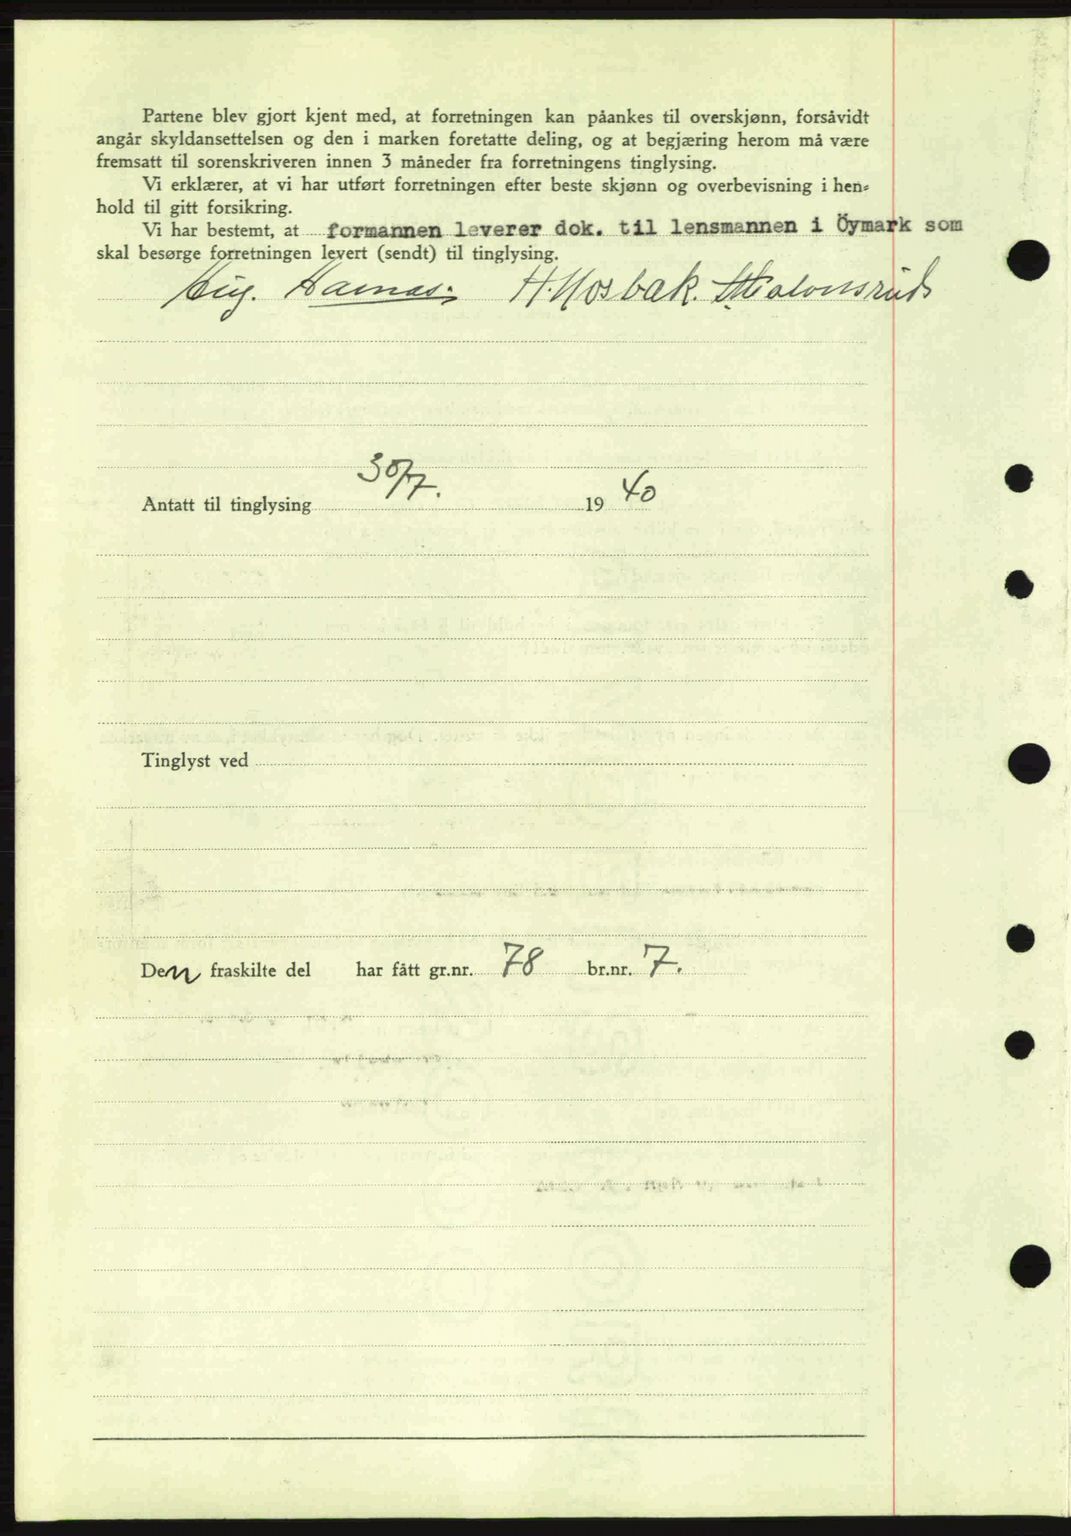 Partene blev gjort kjent med, at forretningen kan påankes til overskjønn, forsåvidt
angår skyldansettelsen og den i marken foretatte deling, og at begjæring herom må være
fremsatt til sorenskriveren innen 3 måneder fra forretningens tinglysing.
Vi erklærer, at vi har utført forretningen efter beste skjønn og overbevisning i hen-
hold til gitt forsikring.
Vi har bestemt, at formannen leverer dok. til lensmannen i Öymark som
skal besørge forretningen levert (sendt) til tinglysing.
Aug. H. Mosbæk.
30/7.
Antatt til tinglysing 19 40
Tinglyst ved
Den fraskilte del har fått gr.nr. 78 br.nr. 7.